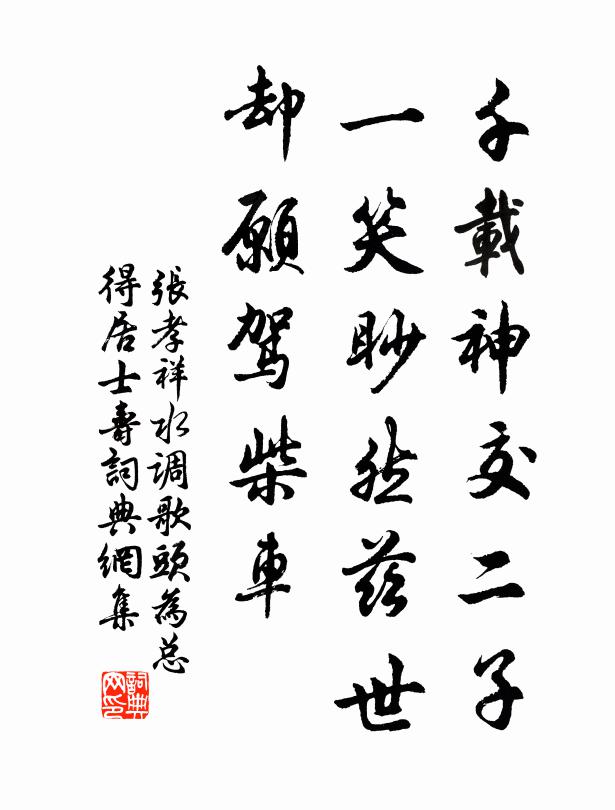 千載神交二子
一笑眇然茲世
却願駕柴車
張孝祥水调歌頭為总
得居士壽詞典網集
詞典网印